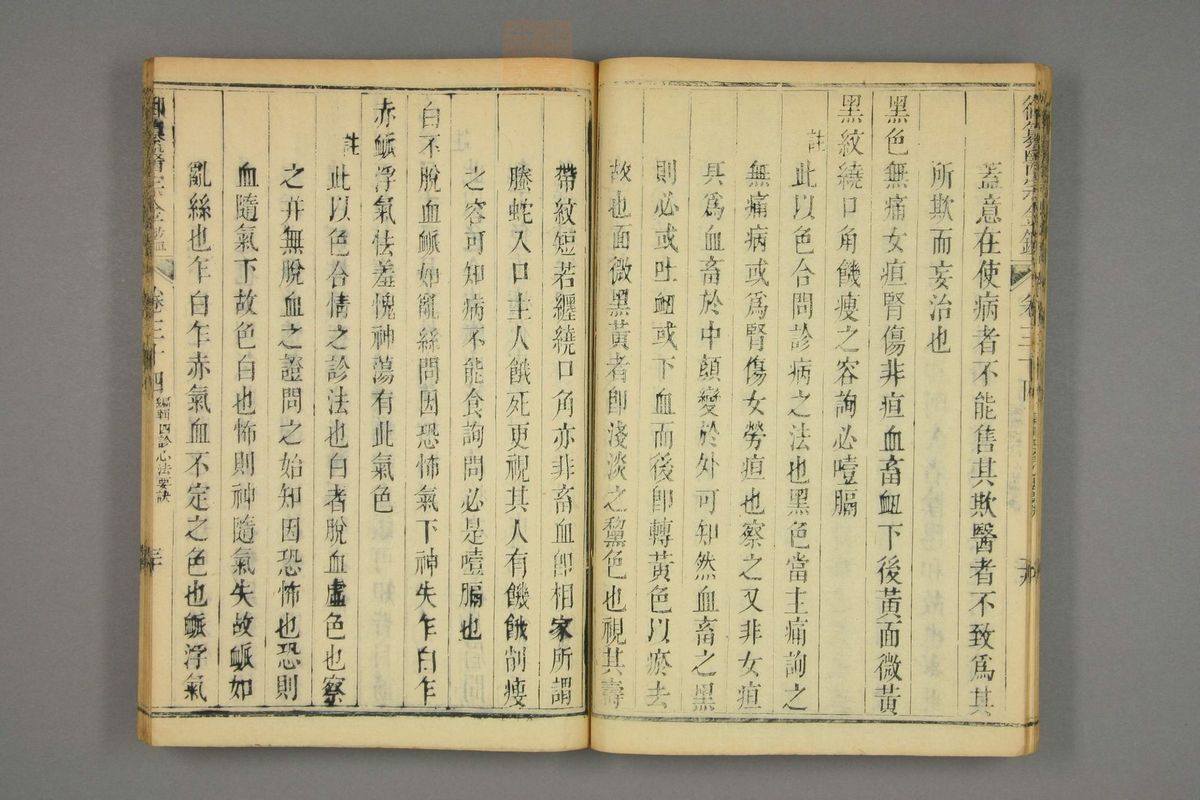 御纂醫宗金鑑 卷三十四
蓋意在使病者不能售其欺醫者不致爲其
所欺而妄治也
黑色無痛女疸腎傷非疸血畜衂下後黃面微黃
黑紋繞口角饑瘦之容詢必噎膈
註
此以色合問診病之法也黑色當主痛詢之
無痛病或爲腎傷女勞疸也察之又非女疸
具爲血畜於中顏變於外可知然血畜之黑
則必或吐衂或下血而後卽轉黃色以瘀去
故也面微黑黃者卽淺淡之黧色也視其壽
帶紋短若纏繞口角亦非畜血卽相家所謂
螣蛇入口主人餓死更視其人有饑餓削瘦
之容可知病不能食詢問必是噎膈也
白不脫血衇如亂絲問因恐怖氣下神失乍白乍
赤衇浮氣怯羞愧神蕩有此氣色
註
此以色合情之診法也白者脫血虛色也察
之幷無脫血之證問之始知因恐怖也恐則
血隨氣下故色白也怖則神隨氣失故衇如
亂絲也乍白乍赤氣血不定之色也衇浮氣
御纂醫宗金鑑 卷三十四 編輯四診心法要訣 三